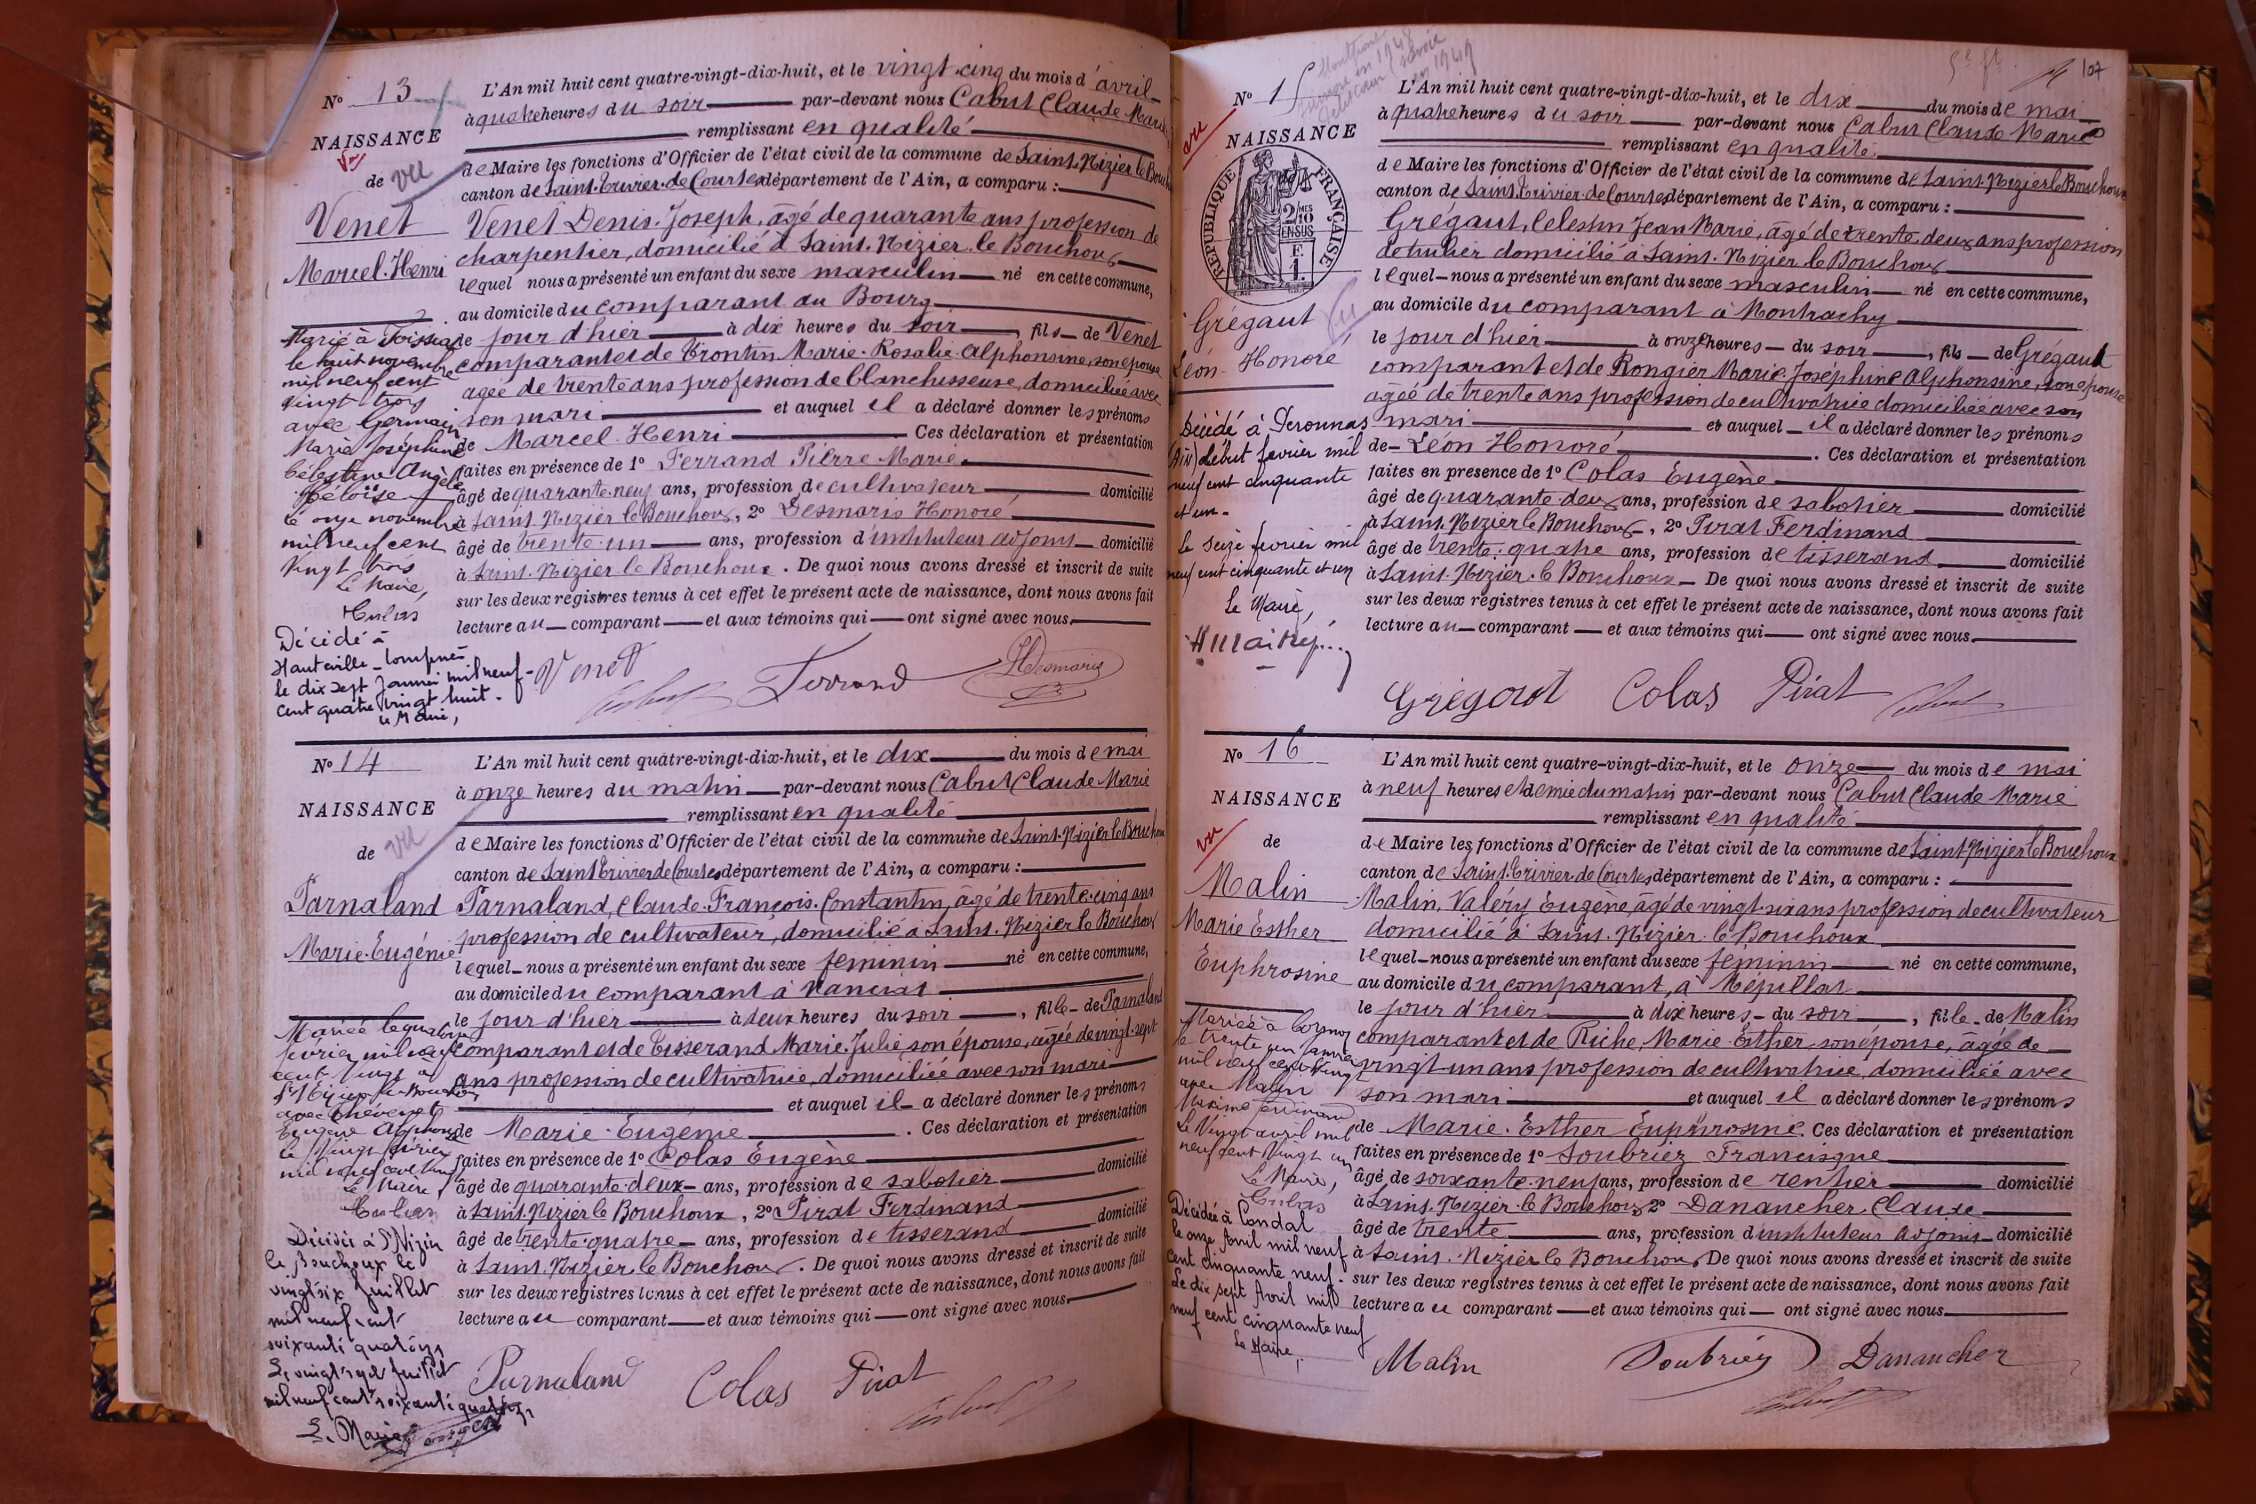 N° 13
NAISSANCE
de vu
Venet
Marcel-Henri
Marié à Foissiat
le huit novembre
mil neuf cent
vingt trois
avec Germain
Marie Joséphine
Célestine Angèle
Héloïse
le onze novembre
mil neuf cent
vingt trois
Le Maire,
Décédé à
Hauteville-Lompnes
le dix sept janvier mil neuf
cent quatre vingt huit.
Le Maire,
L'An mil huit cent quatre-vingt-dix-huit, et le vingt-cinq du mois d'avril
à quatre heures du soir par-devant nous Cabut Claude Marie
remplissant en qualité
de Maire les fonctions d'Officier de l'état civil de la commune de Saint-Nizier le Bouchoux
canton de Saint-Trivier-de Courtes département de l'Ain, a comparu :
Venet Denis-Joseph, âgé de quarante ans profession de
charpentier, domicilié à Saint-Nizier-le Bouchoux
lequel nous a présenté un enfant du sexe masculin né en cette commune,
au domicile du comparant au Bourg
le jour d'hier à dix heures du soir, fils de Venet
comparant et de Trontin Marie-Rosalie-Alphonsine, son épouse
agée de trente ans profession de blanchisseuse, domiciliée avec
son mari et auquel il a déclaré donner les prénoms
de Marcel-Henri Ces déclaration et présentation
faites en présence de 1° Ferrand Pierre Marie
âgé de quarante-neuf ans, profession de cultivateur domicilié
à Saint-Nizier le Bouchoux, 2° Desmaris Honoré
âgé de trente-un ans, profession d'instituteur adjoint domicilié
à Saint-Nizier le Bouchoux. De quoi nous avons dressé et inscrit de suite
sur les deux registres tenus à cet effet le présent acte de naissance, dont nous avons fait
lecture au comparant et aux témoins qui ont signé avec nous
Venet Ferrand HDesmaris
N° 14
NAISSANCE
de vu
Parnaland
Marie-Eugénie
Mariée le quatorze
février mil neuf
cent vingt à
St Nizier le Bouchoux
avec Thévenet
Eugène Alphonse
le vingt février
mil neuf cent vingt
Le Maire,
Décédée à St Nizier
le Bouchoux le
vingt six juillet
mil neuf cent
soixante quatorze
Le vingt sept juillet
mil neuf cent soixante quatorze
Le Maire
L'An mil huit cent quatre-vingt-dix-huit, et le dix du mois de mai
à onze heures du matin par-devant nous Cabut Claude Marie
remplissant en qualité
de Maire les fonctions d'Officier de l'état civil de la commune de Saint-Nizier le Bouchoux
canton de Saint Trivier de Courtes département de l'Ain, a comparu :
Parnaland, Claude-François-Constantin, âgé de trente-cinq ans
profession de cultivateur, domicilié à Saint-Nizier le Bouchoux
lequel nous a présenté un enfant du sexe feminin né en cette commune,
au domicile du comparant à Vanciat
le jour d'hier à deux heures du soir, fille de Parnaland
comparant et de Tisserand Marie-Julie son épouse, agée de vingt-sept
ans profession de cultivatrice, domiciliée avec son mari
et auquel il a déclaré donner les prénoms
de Marie-Eugénie. Ces déclaration et présentation
faites en présence de 1° Colas Eugène
âgé de quarante-deux ans, profession de sabotier domicilié
à Saint-Nizier le Bouchoux, 2° Pirat Ferdinand
âgé de trente-quatre ans, profession de tisserand domicilié
à Saint-Nizier le Bouchoux. De quoi nous avons dressé et inscrit de suite
sur les deux registres tenus à cet effet le présent acte de naissance, dont nous avons fait
lecture au comparant et aux témoins qui ont signé avec nous
Parnaland Colas Pirat
107
N° 15
vu
NAISSANCE
RÉPUBLIQUE FRANÇAISE
2/10 MES
EN SUS
F.
1.
Grégaut
Léon-Honoré
Décédé à Peronnas
(Ain) début février mil
neuf cent cinquante
et un.
Le seize février mil
neuf cent cinquante et un
Le Maire,
L'An mil huit cent quatre-vingt-dix-huit, et le dix du mois de mai
à quatre heures du soir par-devant nous Cabut Claude Marie
remplissant en qualité
de Maire les fonctions d'Officier de l'état civil de la commune de Saint-Nizier le Bouchoux
canton de Saint-Trivier-de Courtes département de l'Ain, a comparu :
Grégaut, Célestin Jean Marie, âgé de trente-deux ans profession
de tuilier domicilié à Saint-Nizier le Bouchoux
lequel nous a présenté un enfant du sexe masculin né en cette commune,
au domicile du comparant à Montrachy
le jour d'hier à onze heures du soir, fils de Grégaut
comparant et de Rongier Marie-Joséphine Alphonsine, son épouse
agée de trente ans profession de cultivatrice domiciliée avec son
mari et auquel il a déclaré donner les prénoms
de Léon Honoré. Ces déclaration et présentation
faites en présence de 1° Colas Eugène
âgé de quarante-deux ans, profession de sabotier domicilié
à Saint-Nizier le Bouchoux, 2° Pirat Ferdinand
âgé de trente-quatre ans, profession de tisserand domicilié
à Saint-Nizier-le Bouchoux De quoi nous avons dressé et inscrit de suite
sur les deux registres tenus à cet effet le présent acte de naissance, dont nous avons fait
lecture au comparant et aux témoins qui ont signé avec nous
Grégaut Colas Pirat
N° 16
NAISSANCE
vu de
Malin
Marie Esther
Euphrosine
Mariée à Cormoz
le trente un janvier
mil neuf cent vingt
avec Malin
Maxime Ferdinand
Le vingt avril mil
neuf cent vingt un
Le Maire,
Décédée à Condal
le onze Avril mil neuf
cent cinquante neuf.
Le dix sept Avril mil
neuf cent cinquante neuf
Le Maire,
L'An mil huit cent quatre-vingt-dix-huit, et le onze du mois de mai
à neuf heures et demie du matin par-devant nous Cabut Claude Marie
remplissant en qualité
de Maire les fonctions d'Officier de l'état civil de la commune de Saint-Nizier le Bouchoux
canton de Saint-Trivier-de Courtes département de l'Ain, a comparu :
Malin, Valéry Eugène, âgé de vingt-six ans profession de cultivateur
domicilié à Saint-Nizier-le Bouchoux
lequel nous a présenté un enfant du sexe feminin né en cette commune,
au domicile du comparant, à Mépillat
le jour d'hier à dix heures du soir, fille de Malin
comparant et de Riche, Marie-Esther, son épouse, âgée de
vingt-un ans profession de cultivatrice, domiciliée avec
son mari et auquel il a déclaré donner les prénoms
de Marie-Esther Euphrosine. Ces déclaration et présentation
faites en présence de 1° Soubriez Francisque
âgé de soixante-neuf ans, profession de rentier domicilié
à Saint-Nizier-le Bouchoux 2° Danancher, Claude
âgé de trente ans, profession d'instituteur adjoint domicilié
à Saint-Nizier le Bouchoux De quoi nous avons dressé et inscrit de suite
sur les deux registres tenus à cet effet le présent acte de naissance, dont nous avons fait
lecture au comparant et aux témoins qui ont signé avec nous
Malin Soubriez Danancher